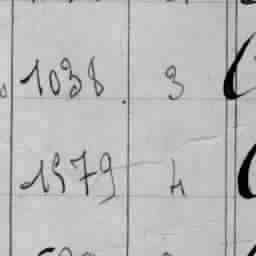 1038 3
1579 4